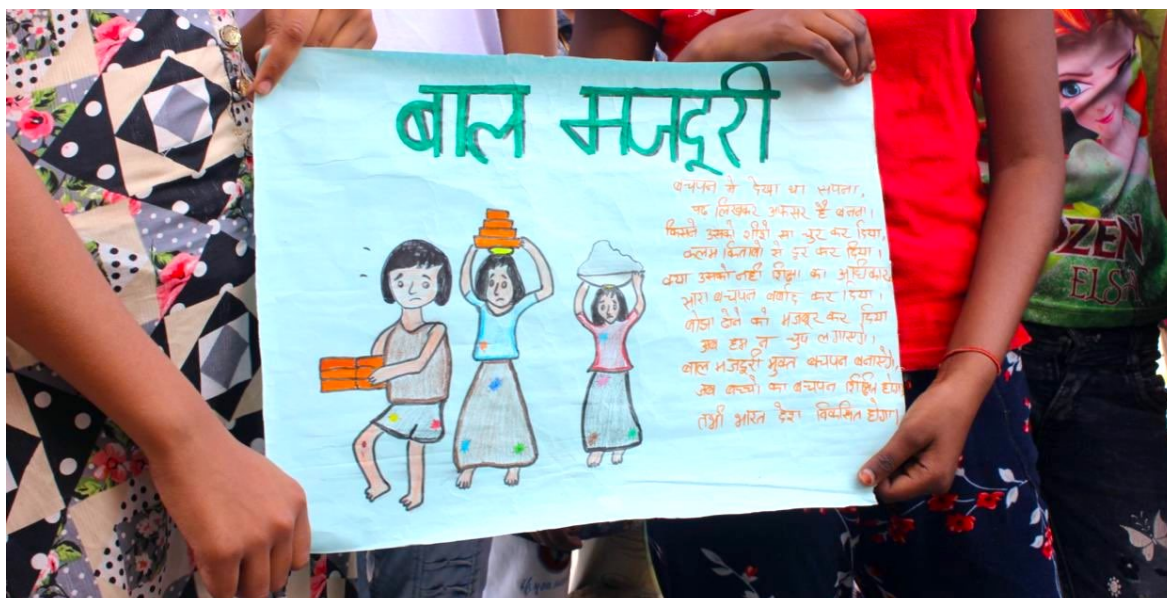 बाल मजदूरी
बचपन मे देखा था सपना,
पढ़ लिखकर अफसर है बनना।
किसने उसको शीशे सा चुर कर दिया,
कलम किताबो से दूर कर दिया।
क्या उसको नही शिक्षा का अधिकार
सारा बचपन बर्बाद कर दिया।
बोझा ढोने को मजबूर कर दिया
अब हम न चुप लगाएगे।
बाल मजदूरी मुक्त बचपन बनाएगे,
जब बच्चो का बचपन शिक्षित होगा
तभी भारत देश विकसित होगा।
ZEN
ELSA